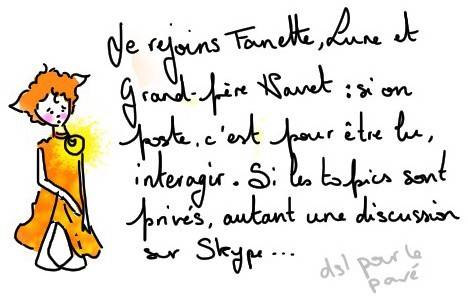 Je rejoins Fanette, Lune et
Grand-père Navet : si on
poste, c'est pour être lu,
interagir. Si les topics sont
privés, autant une discussion
sur Skype...
dsl pour le
pavé